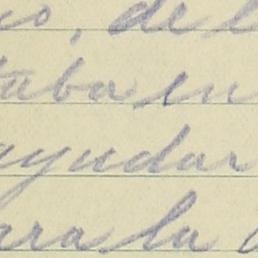 de
taba en
ayudar
ara la